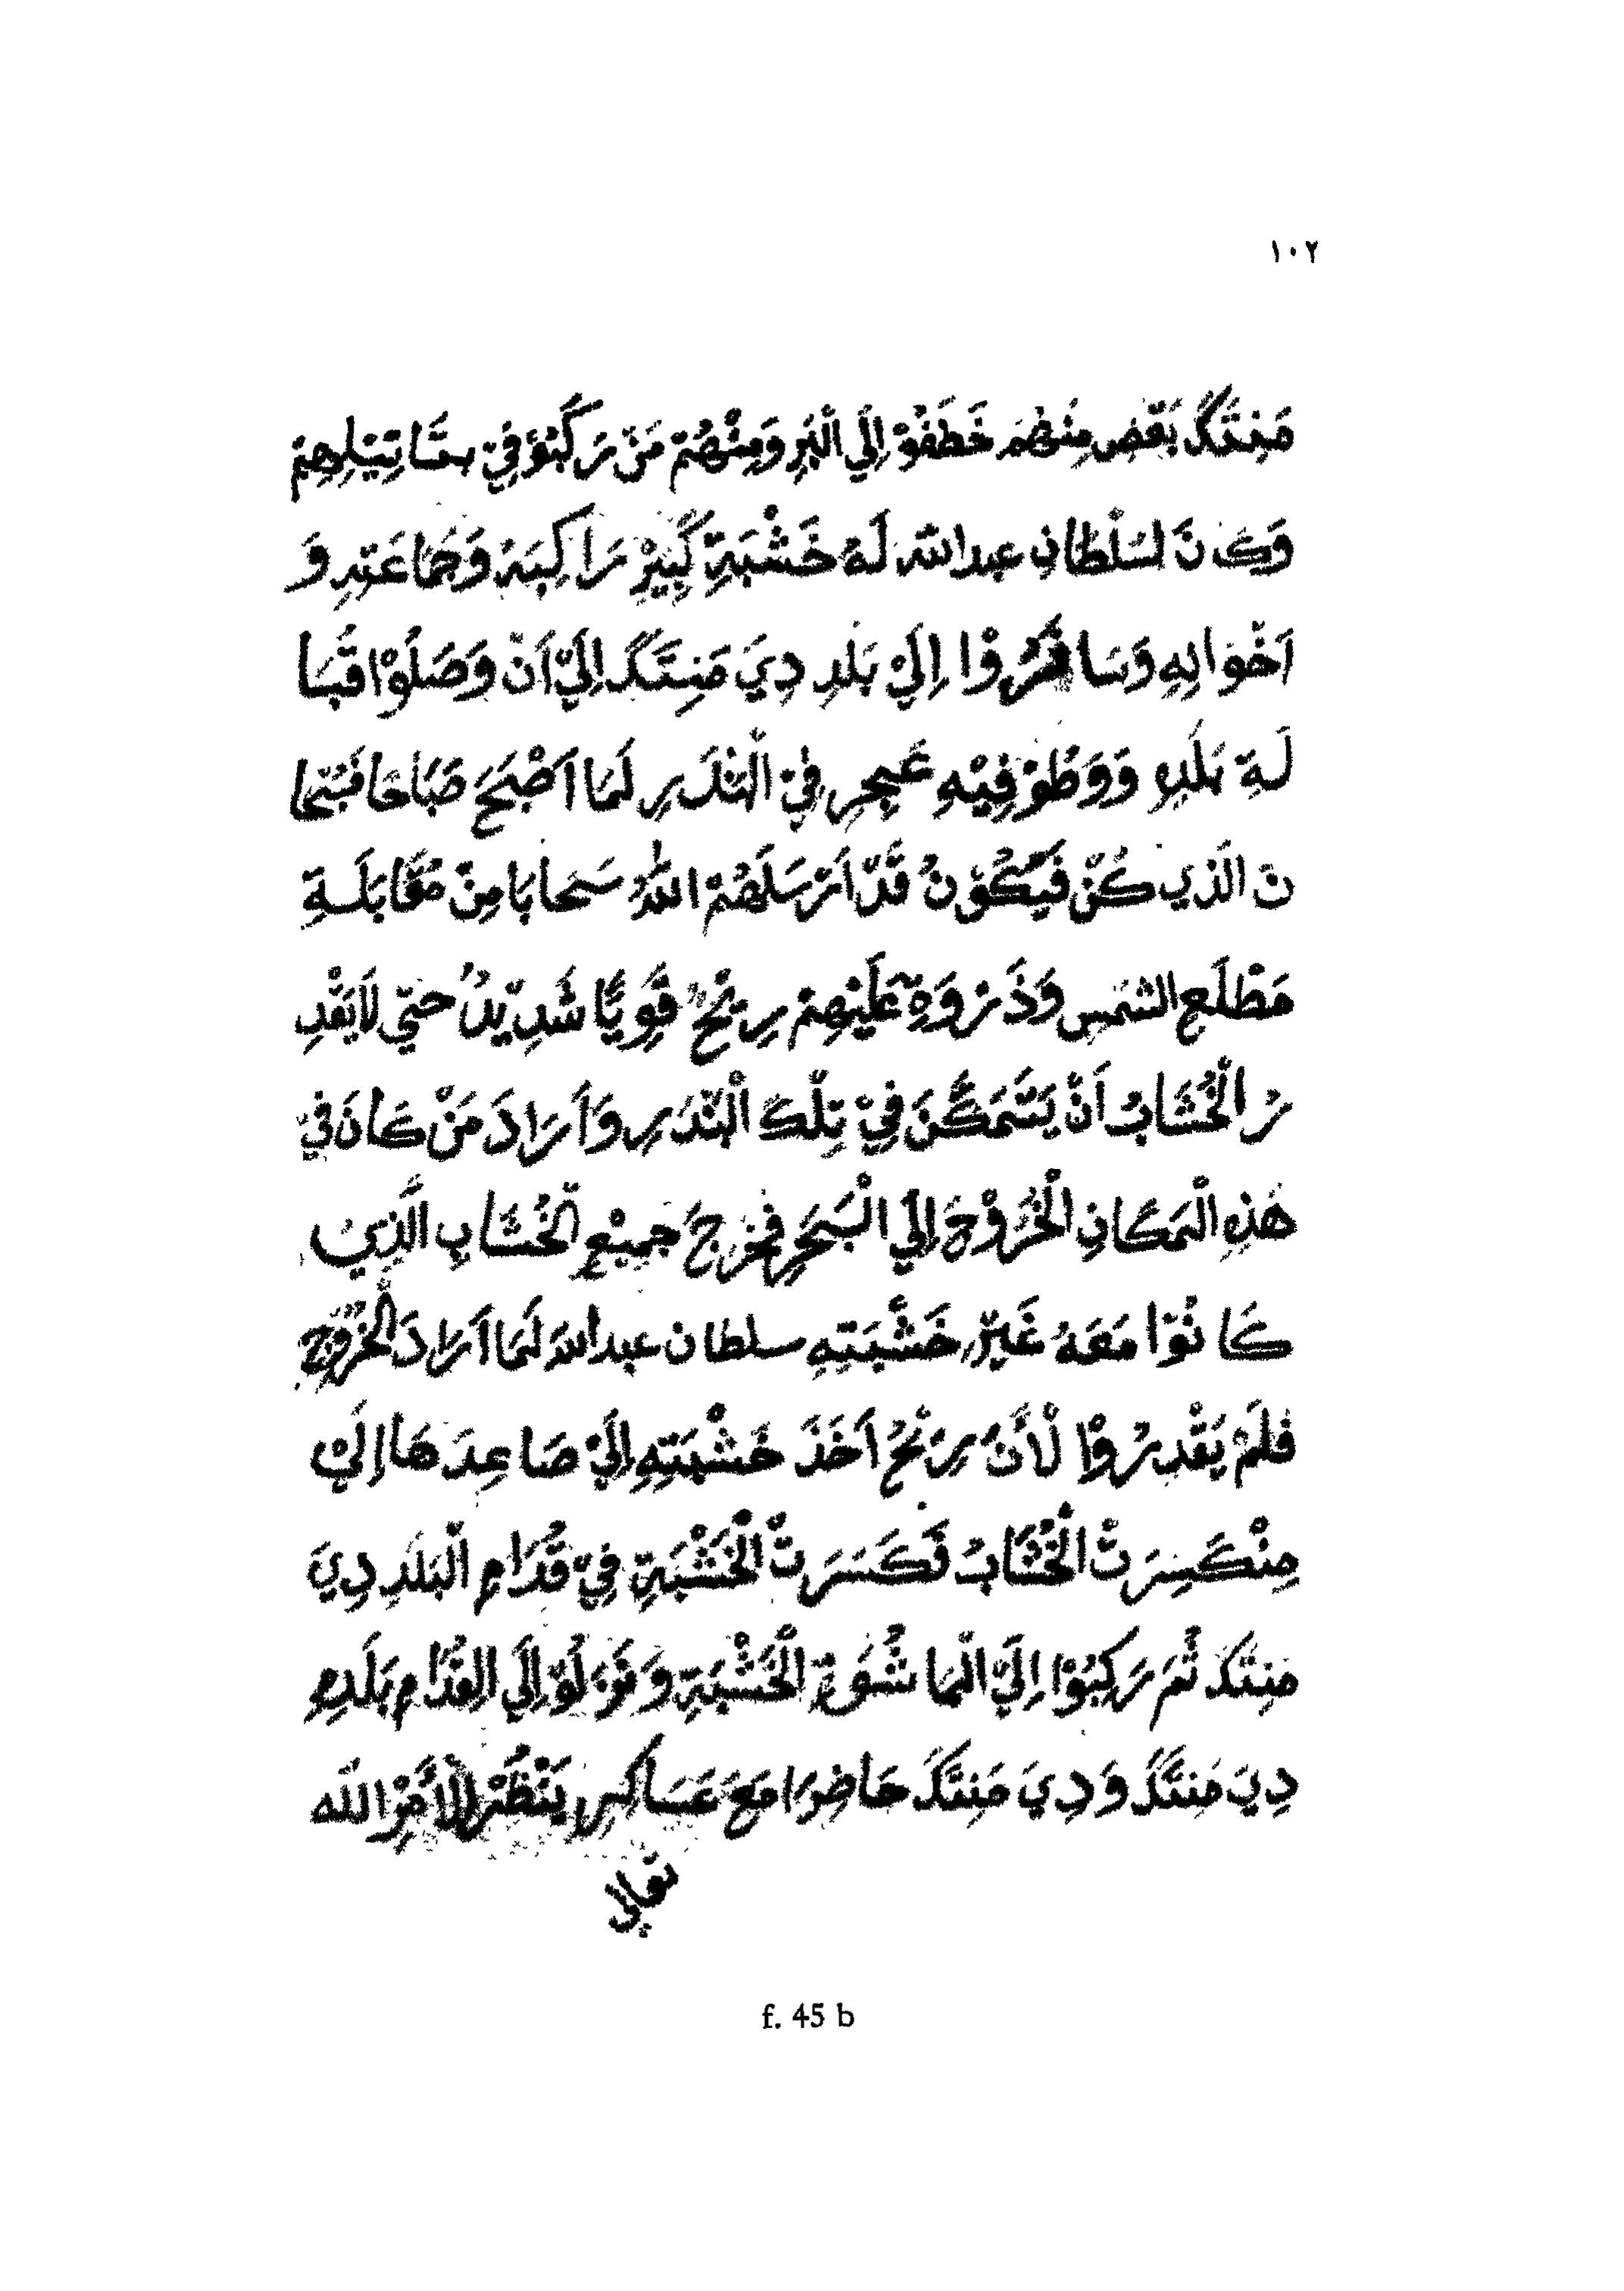 ١٠٢
مَنِتَكَّ بَعْضِ مِنْهُمَ خَطَفُوْ إِلَي الْبَرِ وَمِنْهُمْ مَنْ رَكَبُوْ فِيْ بَتَاتِيْلِهِمْ
وَكَانَ لسُلْطَانِ عبدالله لَهُ خَشْبَةِ كَبِيْرِ رَاكِبَهُ وَجَمَاعَتِهِ وَ
اَخْوَانِهِ وَسَافَرُوْا إِلَيْ بَلَدِ دِيَ مَنِتَكَّ إِلَيْ اَنْ وَصَلُوْا قُبَا
لَةِ بَلَدِهِ وَوَطُوْ فِيْهِ عَجِرِ فِيْ الْبَنْدَرِ لَمَا اَصْبَحَ صَبَاحَا فَسُبْحَا
نَ الَذِي كُنْ فَيَكُوْنُ قَدْ اَرْسَلَهُمْ اللهُ سَحَابَا مِنْ مُقَابَلَةِ
مَطْلَعِ الشمَسِ وَذَرْوَةِ عَلَيْهِمْ رِيْحٌ قَوِيًا شَدِيْدٌ حَتيَّ لاَيَقْدِ
رُ الْخُشَابُ اَنْ يَتَمَكَّنَ فِيْ تِلْكَ الْبَنْدَرِ وَاَرَادَ مَنْ كَانَ فيْ
هَذِهِ الْمَكَانِ الْخُرُوْجَ إِلَي الْبَحَرِ فَخَرَجَ جَمِيْعِ الْخُشَابِ الَّذِيْ
كَانُوْا مَعَهُ غَيْرِ خَشْبَتِهِ سلطان عبدالله لَمَا اَرَادَ الْخُرُوْجِ
فَلَمْ يَقْدِرُوْا لْأَنَّ رِيْحُ اَخَذَ خَشْبَتِهِ إِلَيْ صَاعِدَهَا إِلَيْ
مِنْكَسِرَتْ الْخُشَابُ فَكَسَرَتْ الْخَشْبَةِ فِيْ قُدَامِ الْبَلَدِ دِيَ
مَنِتَكَّ ثُمَ رَكِبُوْا إِلَيْ الْمَا شُوَةِ الْخَشْبَةِ وَنَزَلُوْ إِلَي القُدَّامِ بَلَدِهِ
دِيَ مَنِتَكَّ وَدِيَ مَنِتَكَّ حَاضِرَا مَعَ عَسَاكِرِ يَنْظُرْ لِلْأَمْرِ الله
تعالى
f. 45 b